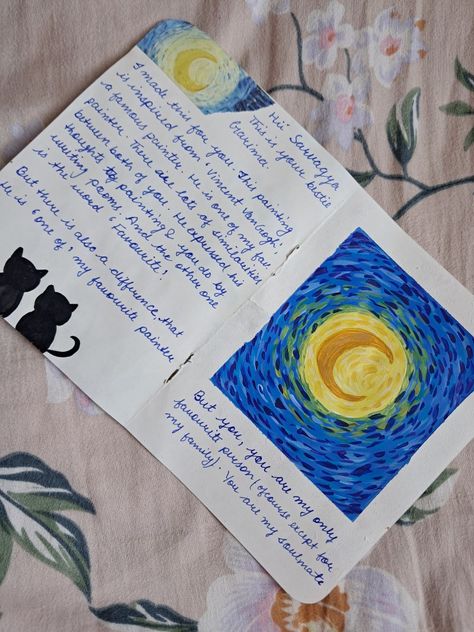 Hii Sarwagya
This is your bestie
Garima.
I made this for you. This painting
is inspired from Vincent VanGogh
a famous painter. He is one of my fav
painter. There are lots of similarities
between both of you. He expressed his
thoughts by painting & you do by
writing poems. And the other one
is the word 'Favourite'!
But there is also a difference, that
He is 'one of' my favourite painter
But you, you are my only
favourite person (ofcourse except for
my family). You are my soulmate